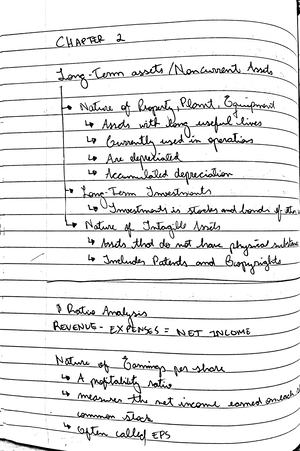 CHAPTER 2
Long-Term assets/Noncurrent Assets
→ Nature of Property, Plant, Equipment
↳ Assets with long useful lives
↳ Currently used in operations
↳ Are depreciated
↳ Accumulated depreciation
→ Long-Term Investments
↳ Investments is stocks and bonds of the
→ Nature of Intagible Assets
↳ Assets that do not have physical
↳ Includes Patents and Copyrights
Ratio Analysis
REVENUE - EXPENSES = NET INCOME
Nature of Earnings per share
↳ A profitability ratio
↳ measures the net income earned on each
common stock
↳ Often called EPS